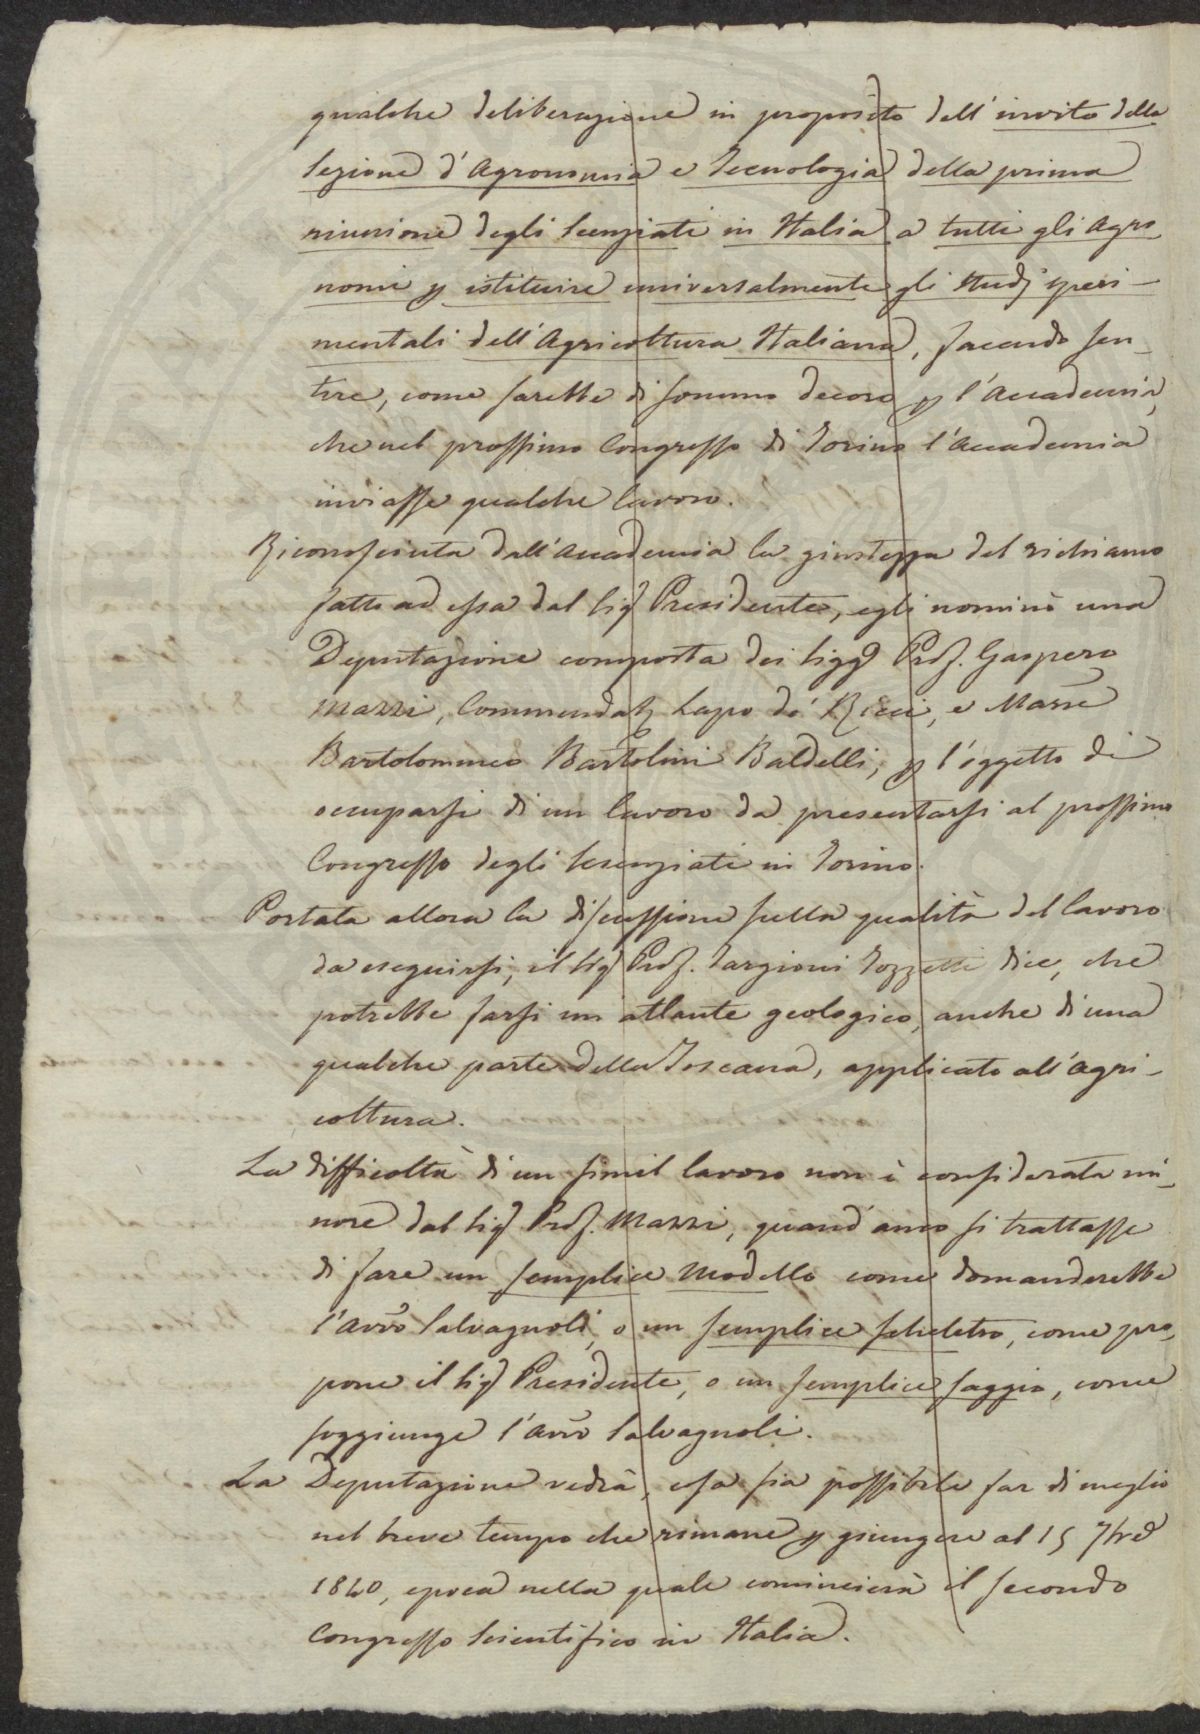 qualche deliberazione in proposito dell'invito della
Sezione d'Agronomia e Tecnologia della prima
riunione degli Scenziati in Italia a tutti gli Agro
nomi p istituire universalmente gli Studj speri-
mentali dell'Agricoltura Italiana, facendo sen-
tire, come sarebbe di sommo decoro p l'Accademia,
che nel prossimo Congresso di Torino l'Accademia
inviasse qualche lavoro.
Riconosciuta dall'Accademia la giustezza del richiamo
fatto ad essa dal Sig Presidente, egli nominò una
Deputazione composta dei Sigg Prof. Gaspero
Mazzi, Commendat Lapo de' Ricci, e March
Bartolommeo Bartolini Baldelli, p l'oggetto di
occuparsi di un lavoro da presentarsi al prossimo
Congresso degli Scenziati in Torino.
Portata allora la discussione sulla qualità del lavoro
da eseguirsi, il Sig Prof. Targioni Tozzetti dice, che
potrebbe farsi un atlante geologico, anche di una
qualche parte della Toscana, applicato all'agri-
coltura.
La difficoltà di un simil lavoro non è considerata mi-
nore dal Sig Prof. Mazzi, quand'anco si trattasse
di fare un semplice Modello come domanderebbe
l'Avvo Salvagnoli, o un semplice scheletro, come pro
pone il Sig Presidente, o un semplice saggio, come
soggiunge l'Avvo Salvagnoli.
La Deputazione vedrà, cosa sia possibile far di meglio
nel breve tempo che rimane p giungere al 15 7bre
1840, epoca nella quale comincierà il secondo
Congresso Scientifico in Italia.